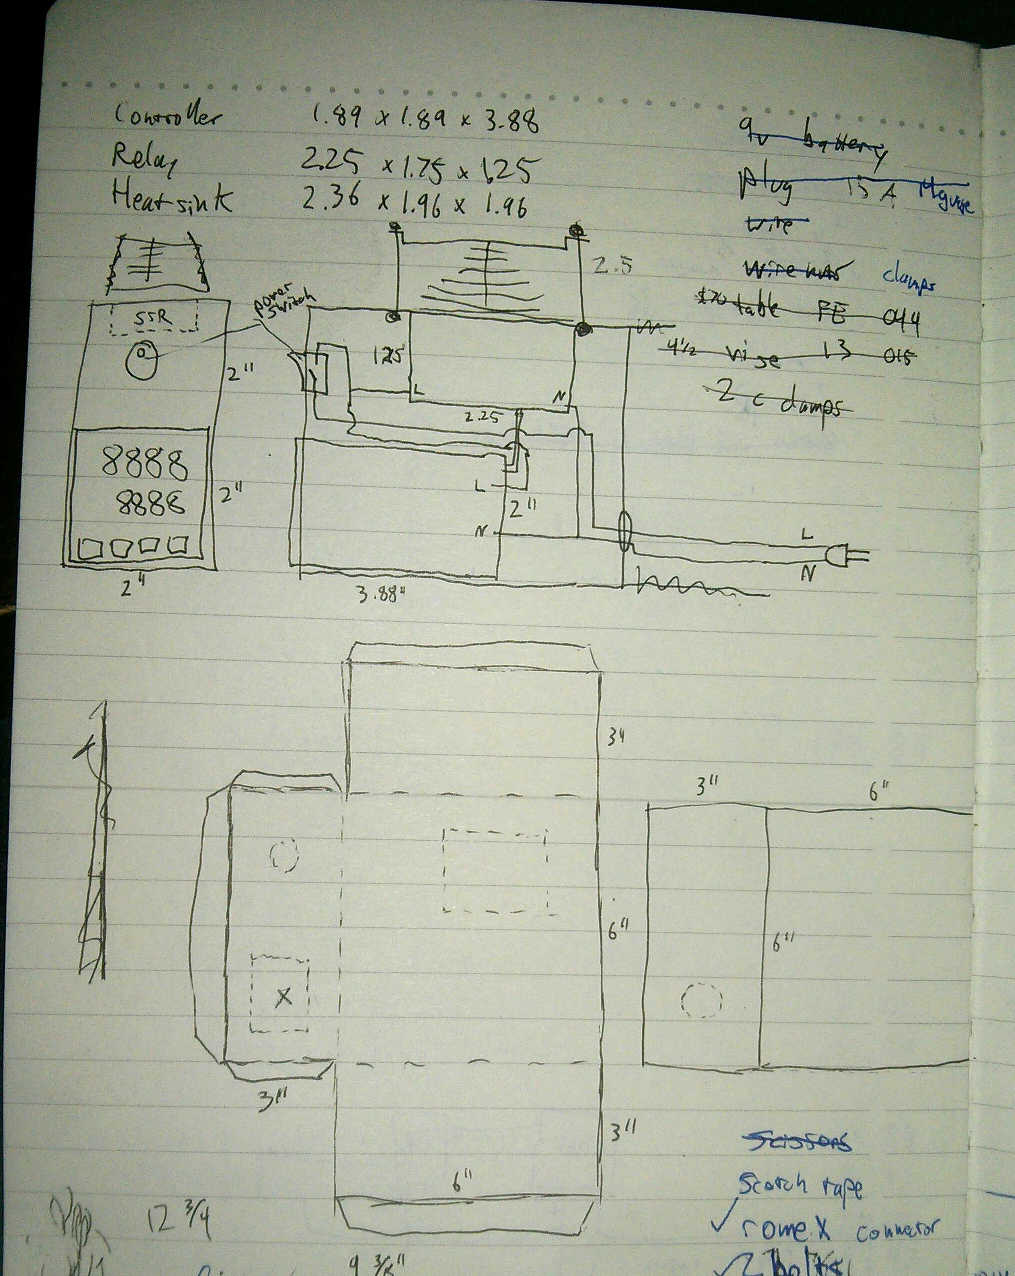 Controller 1.89 x 1.89 x 3.88
Relay 2.25 x 1.75 x 1.25
Heatsink 2.36 x 1.96 x 1.96
9v battery
plug 15A
wire
wire nuts clamps
$70 table FE 044
4½ vise 13 015
2 c clamps
2.5
power
switch
SSR
2"
1.25
L
N
2.25
8888
8888
2"
L
2"
N
L
N
2"
3.88"
3"
3"
6"
6"
6"
X
3"
3"
6"
Scissors
Scotch tape
romex connector
2 bolts
12 3/4
9 3/8"